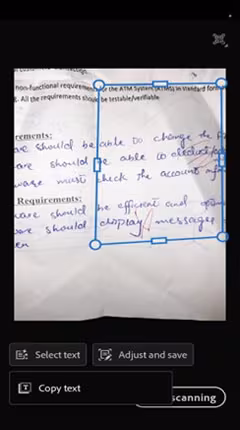 non-functional requirements for the ATM System (ATMS) in standard form
g. All the requirements should be testable/verifiable.
rements:
are should be able to change the
are should be able to deduct
ware must check the account
Requirements:
ware should be efficient and
are should display messages
en
Select text
Adjust and save
Copy text
scanning